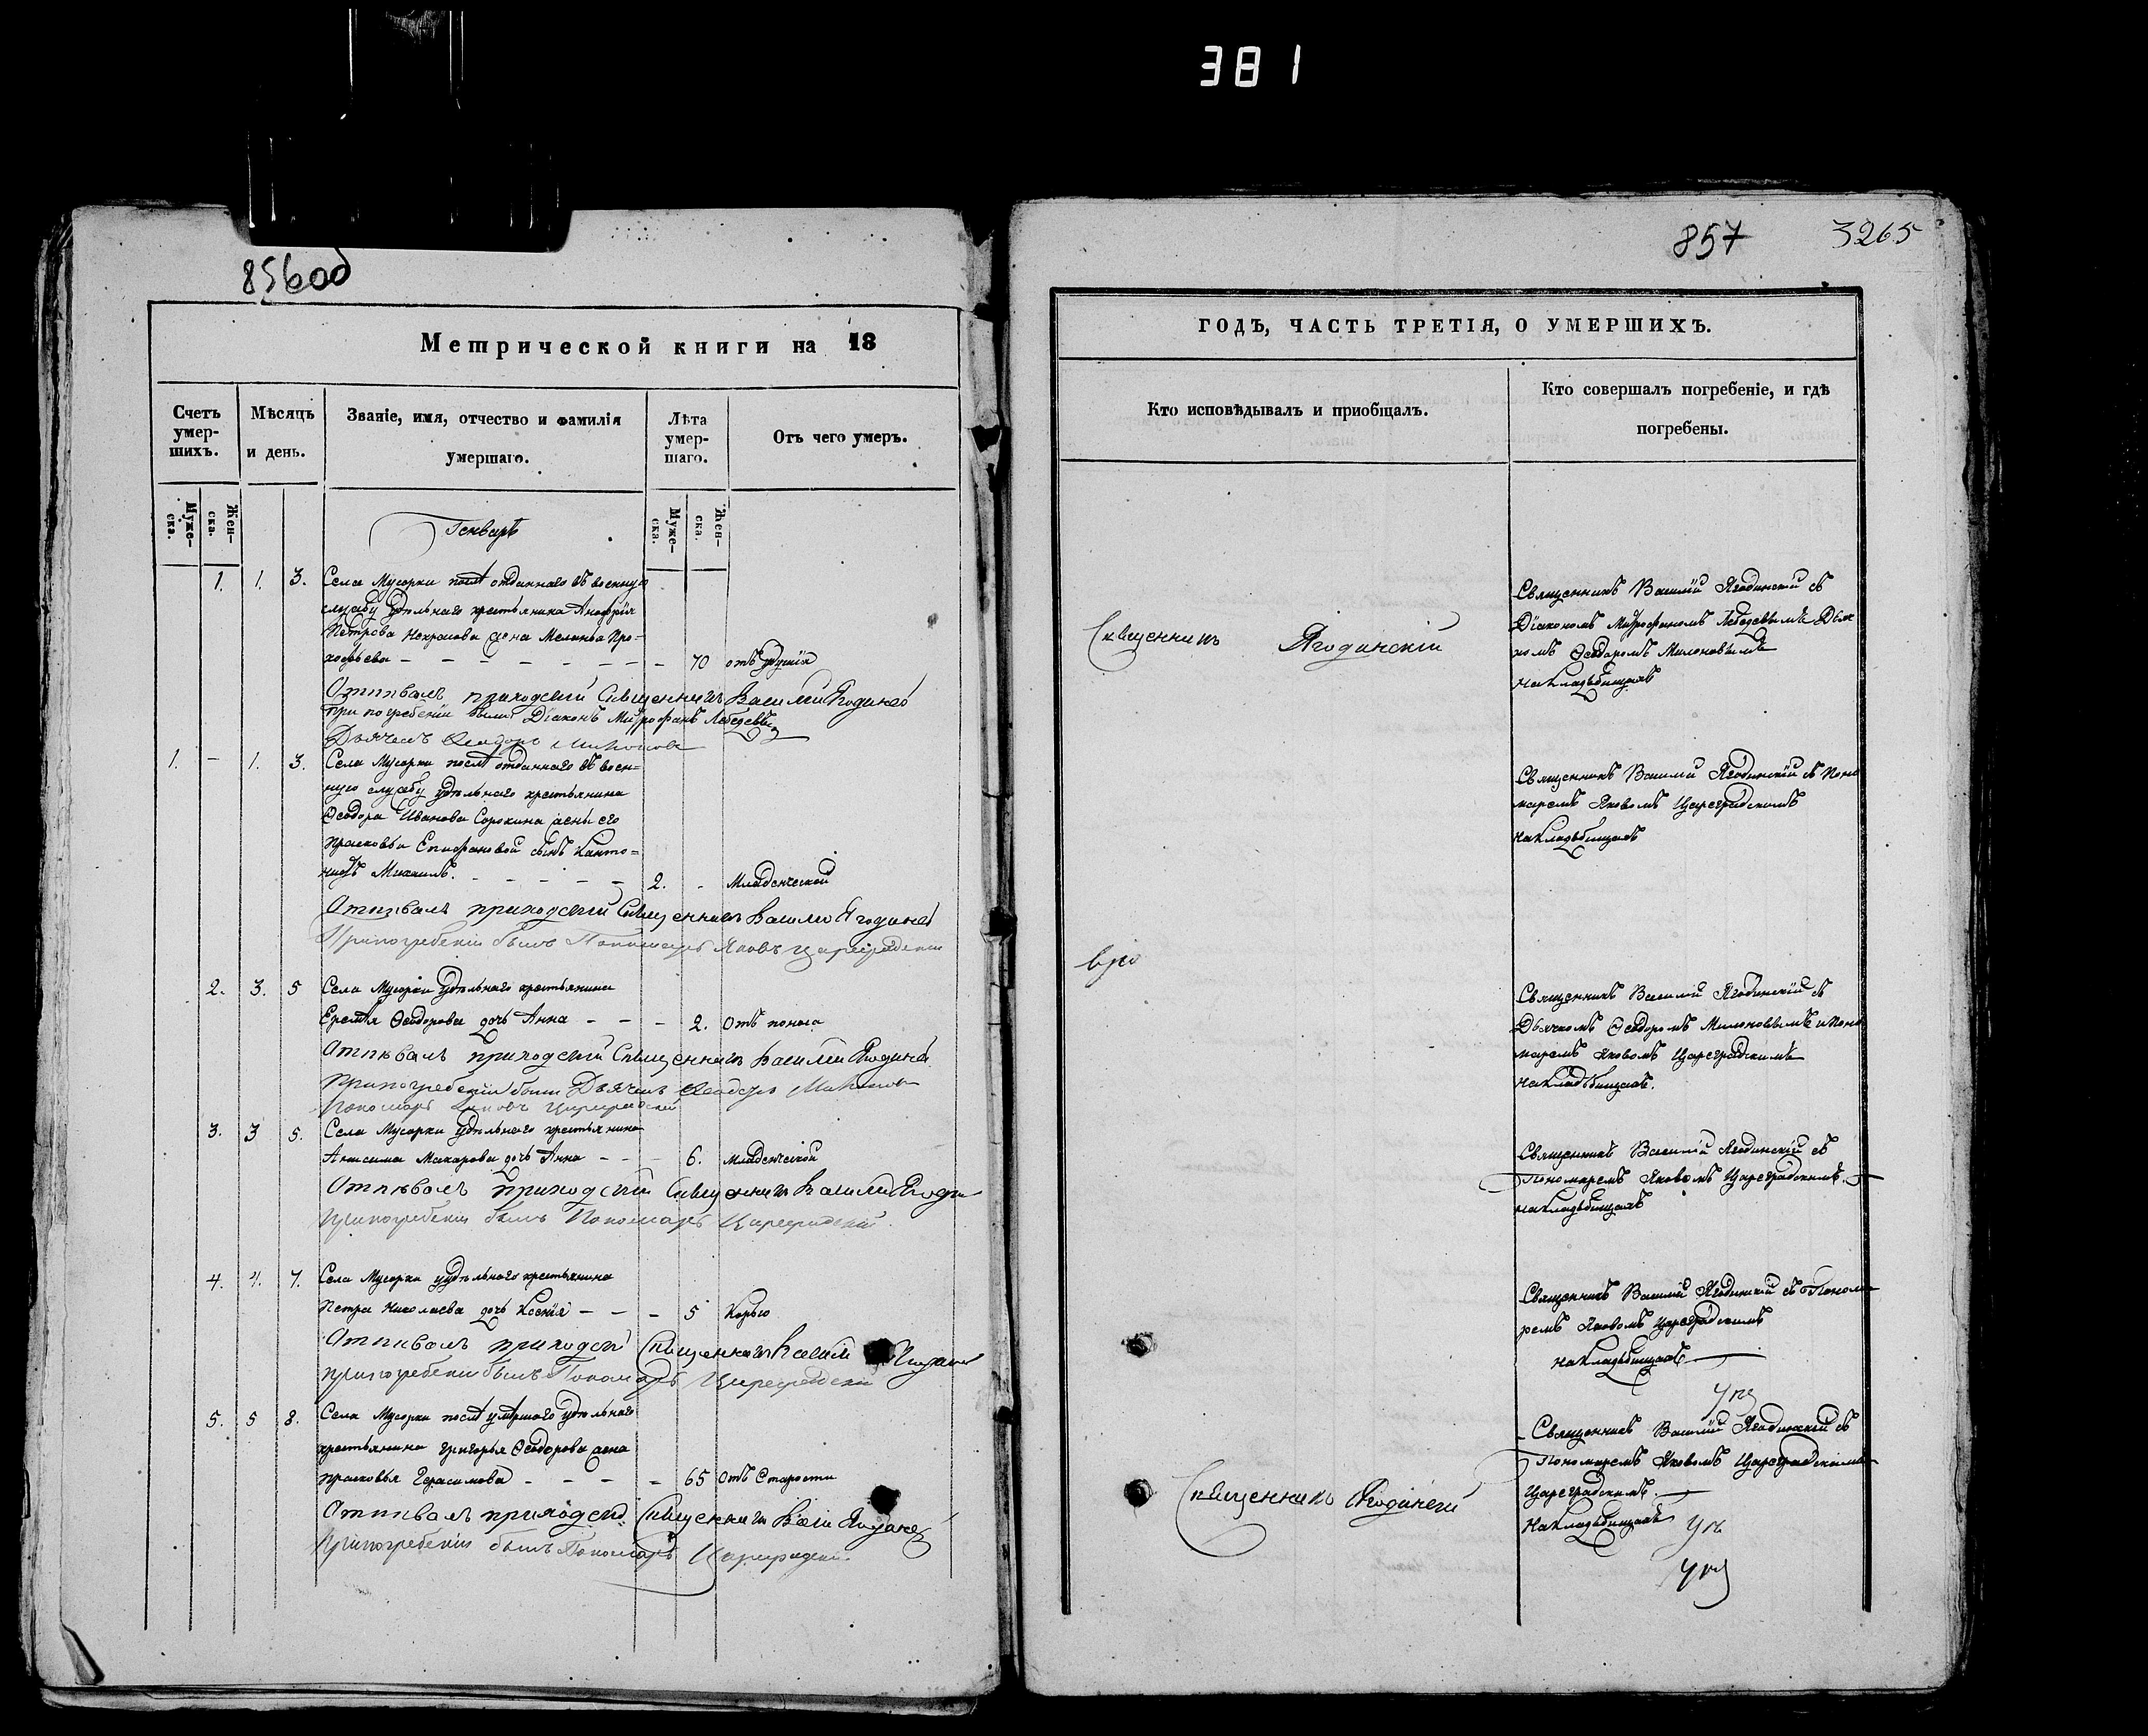 381
856 об
Метрической книги на 18
Счетъ умер-шихъ.
Мѣсяцъ и день.
Званіе, имя, отчество и фамилія умершаго.
Лѣта умер-шаго.
Отъ чего умеръ.
Муже-ска.
Жен-ска.
Муже-ска.
Жен-ска.
Генварь
1. 1. 3. Села Мусорки послѣ отданнаго въ военную
службу удѣльнаго крестьянина Анофрія
Петрова Некрасова жена Меланья Про=
кофьева - - - - - - - 70 отъ удушія
Отпѣвалъ приходскій Священникъ Василій Ягодинскій
При погребеніи были Діаконъ Митрофанъ Лебедевъ
Дьячекъ Ѳеодоръ Милоновъ
1. - 1. 3. Села Мусорки послѣ отданнаго въ воен=
ную службу удѣльнаго крестьянина
Ѳеодора Иванова Сорокина жены его
Прасковьи Епифановой сынъ Канто=
нистъ Михаилъ. - - - - - 2. - Младенческой
Отпѣвалъ приходскій Священникъ Василій Ягодинскій
При погребеніи былъ Пономарь Яковъ Цареградскій
2. 3. 5 Села Мусорки удѣльнаго крестьянина
Еремѣя Ѳеодорова дочь Анна - - - 2. Отъ поноса
Отпѣвалъ приходскій Священникъ Василій Ягодинскій
При погребеніи были Дьячекъ Ѳеодоръ Милоновъ
Пономарь Яковъ Цареградскій
3. 3 5. Села Мусорки удѣльнаго крестьянина
Анисима Макарова дочь Анна - - - 6. Младенческой
Отпѣвалъ приходскій Священникъ Василій Ягоди
При погребеніи былъ Пономарь Цареградскій
4. 4. 7. Села Мусорки удѣльнаго крестьянина
Петра Николаева дочь Ксенія - - - 5 Корью
Отпѣвалъ приходскій Священникъ Василій Ягодинскій
При погребеніи былъ Пономарь Цареградскій
5. 5 8. Села Мусорки послѣ умершаго удѣльнаго
крестьянина Григорья Ѳеодорова жена
Прасковья Герасимова - - - - 65 Отъ Старости
Отпѣвалъ приходскій Священникъ Васи Ягодинс
При погребеніи былъ Пономарь Цареградскій
857 3265
ГОДЪ, ЧАСТЬ ТРЕТІЯ, О УМЕРШИХЪ.
Кто исповѣдывалъ и пріобщалъ.
Кто совершалъ погребеніе, и гдѣ погребены.
Священникъ Ягодинскій
Священникъ Василій Ягодинскій съ
Діакономъ Митрофаномъ Лебедевымъ Дьяч
комъ Ѳеодоромъ Милоновымъ
на кладьбищахъ
Священникъ Василій Ягодинскій съ Поно
маремъ Яковомъ Цареградскимъ
на кладьбищахъ
Священникъ Василій Ягодинскій съ
Дьячкомъ Ѳеодоромъ Милоновымъ и Поно
маремъ Яковомъ Цареградскимъ
на кладьбищахъ.
Священникъ Василій Ягодинскій съ
Пономаремъ Яковомъ Цареградскимъ.
на кладьбищахъ
Священникъ Василій Ягодинскій съ Понома
ремъ Яковомъ Цареградскимъ
на кладьбищахъ
Священникъ Ягодинскій
Священникъ Василій Ягодинскій съ
Пономаремъ Яковомъ Цареградскимъ
Цареградскимъ.
на кладьбищахъ